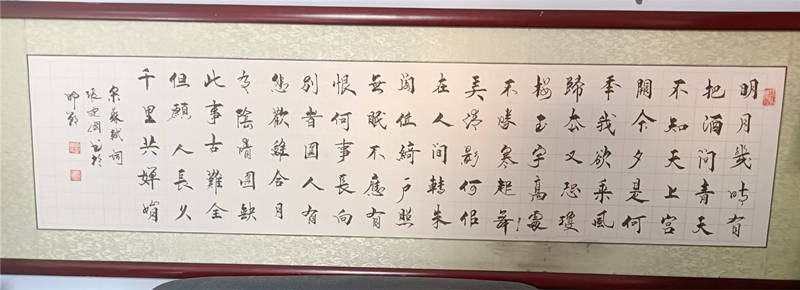 明月幾時有
把酒問青天
不知天上宫
闕今夕是何
年我欲乘風
歸去又恐瓊
樓玉宇高處
不勝寒起舞
弄清影何似
在人間轉朱
閣低綺户照
無眠不應有
恨何事長向
别時圆人有
悲歡離合月
有陰晴圆缺
此事古難全
但願人長久
千里共嬋娟
宋蘇軾詞
張建國书於